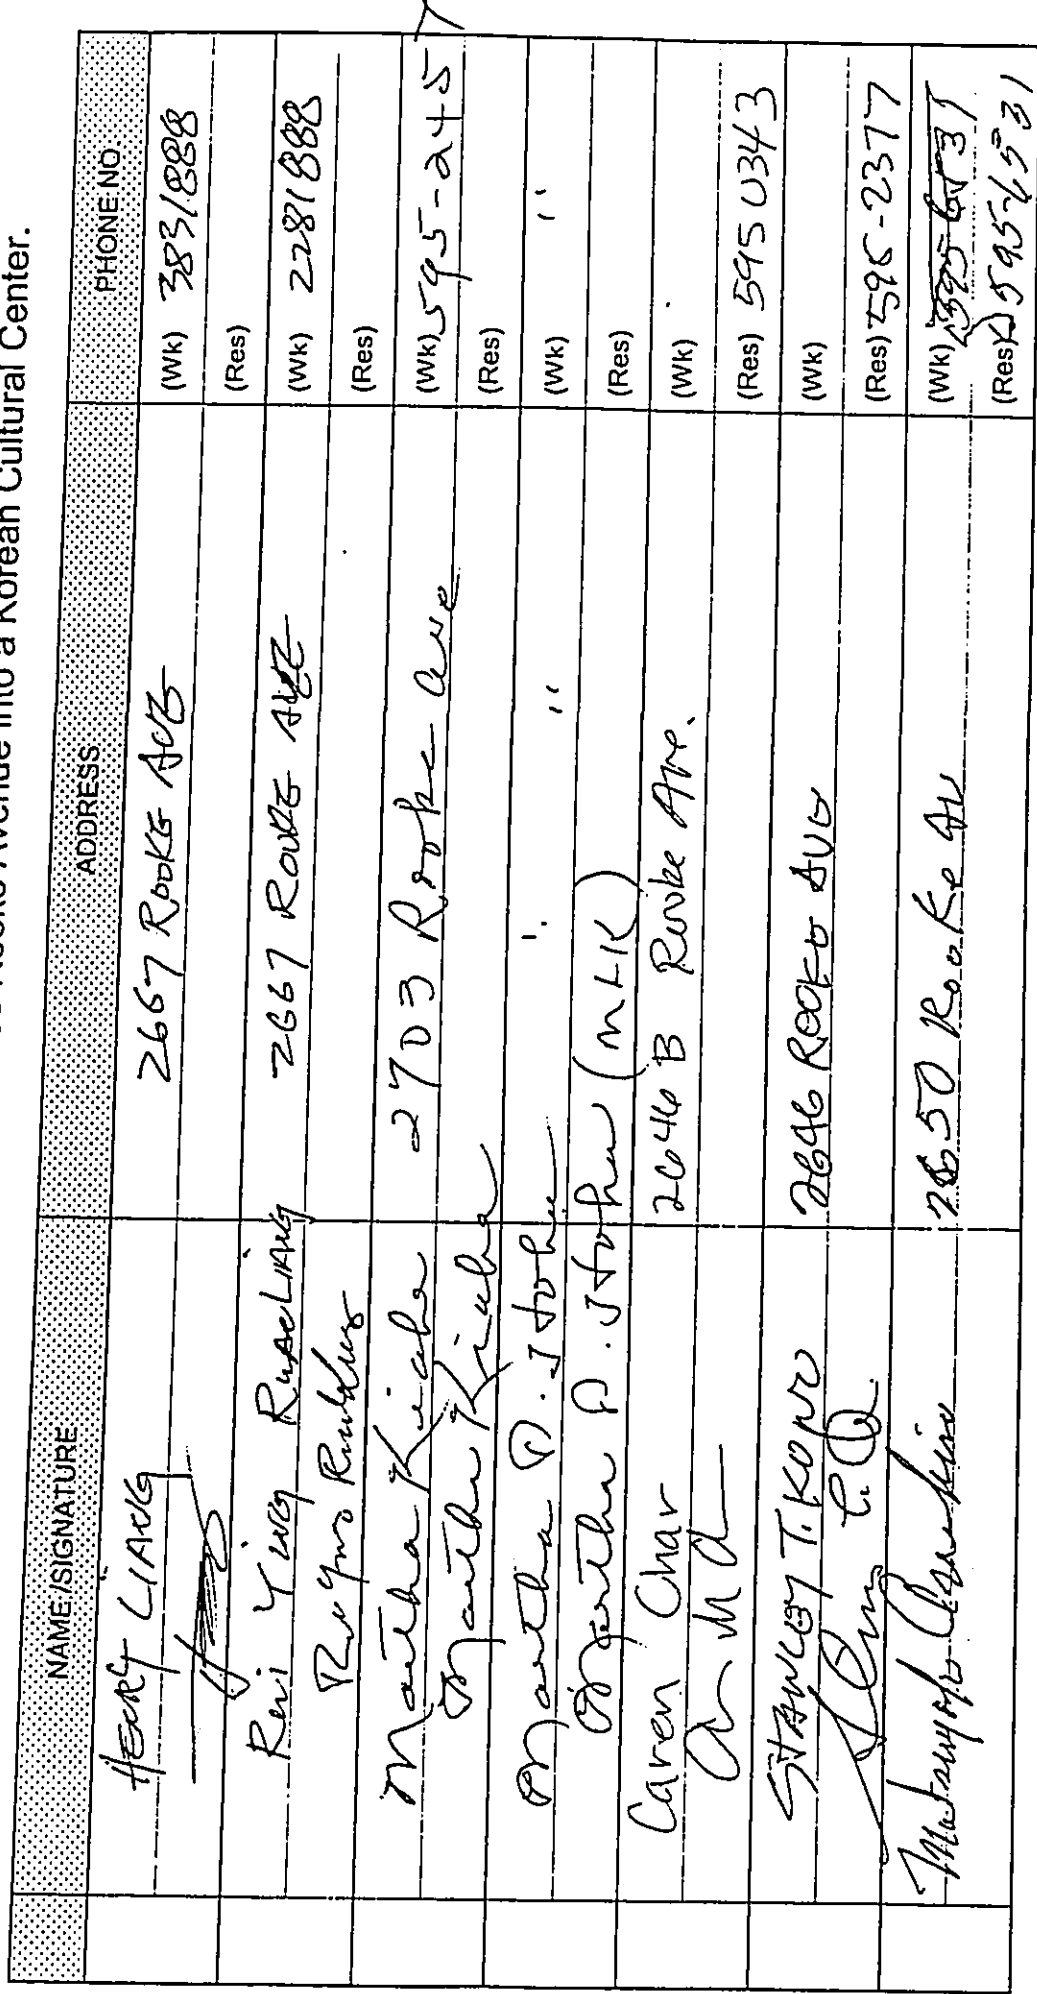 Rooke Avenue into a Korean Cultural Center.
NAME/SIGNATURE ADDRESS PHONE NO.
HENRY LIANG 2667 ROOKE AVE (Wk) 3831888
(Res)
Rui Ying Ruan LIANG 2667 ROOKE AVE (Wk) 2281888
(Res)
Martha Kiaha 2703 Rooke Ave (Wk) 595-2457
Martha Kiaha (Res)
Martha P. Itohu " " (Wk) "
Martha P. Itohu (MLK) (Res)
Caren Char 2646 B Rooke Ave. (Wk)
(Res) 5950343
STANLEY T. KONO 2646 ROOKE AVE (Wk)
(Res) 595-2377
2650 Rooke Av (Wk) 595-6531
(Res) 595-6531